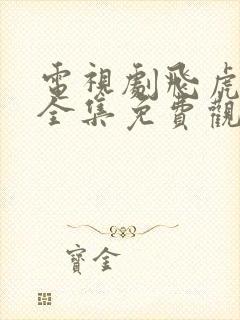 電視劇飛虎
全集免費觀
寶金